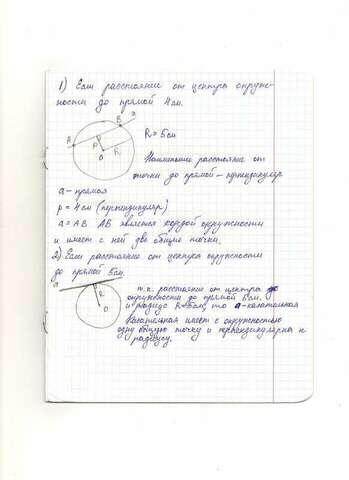 1) Если расстояние от центра окруж-
ности до прямой 4 см.
a
B
A
p
R
O
R = 5 см
Наименьшее расстояние от
точки до прямой - перпендикуляр
a - прямая
p = 4 см (перпендикуляр)
a = AB AB является хордой окружности
и имеет с ней две общие точки.
2) Если расстояние от центра окружности
до прямой 5 см.
a
R
O
т.к. расстояние от центра до
окружности до прямой 5 см.
и радиус R = 5 см, то a - касательная
Касательная имеет с окружностью
одну общую точку и перпендикулярна к
радиусу.